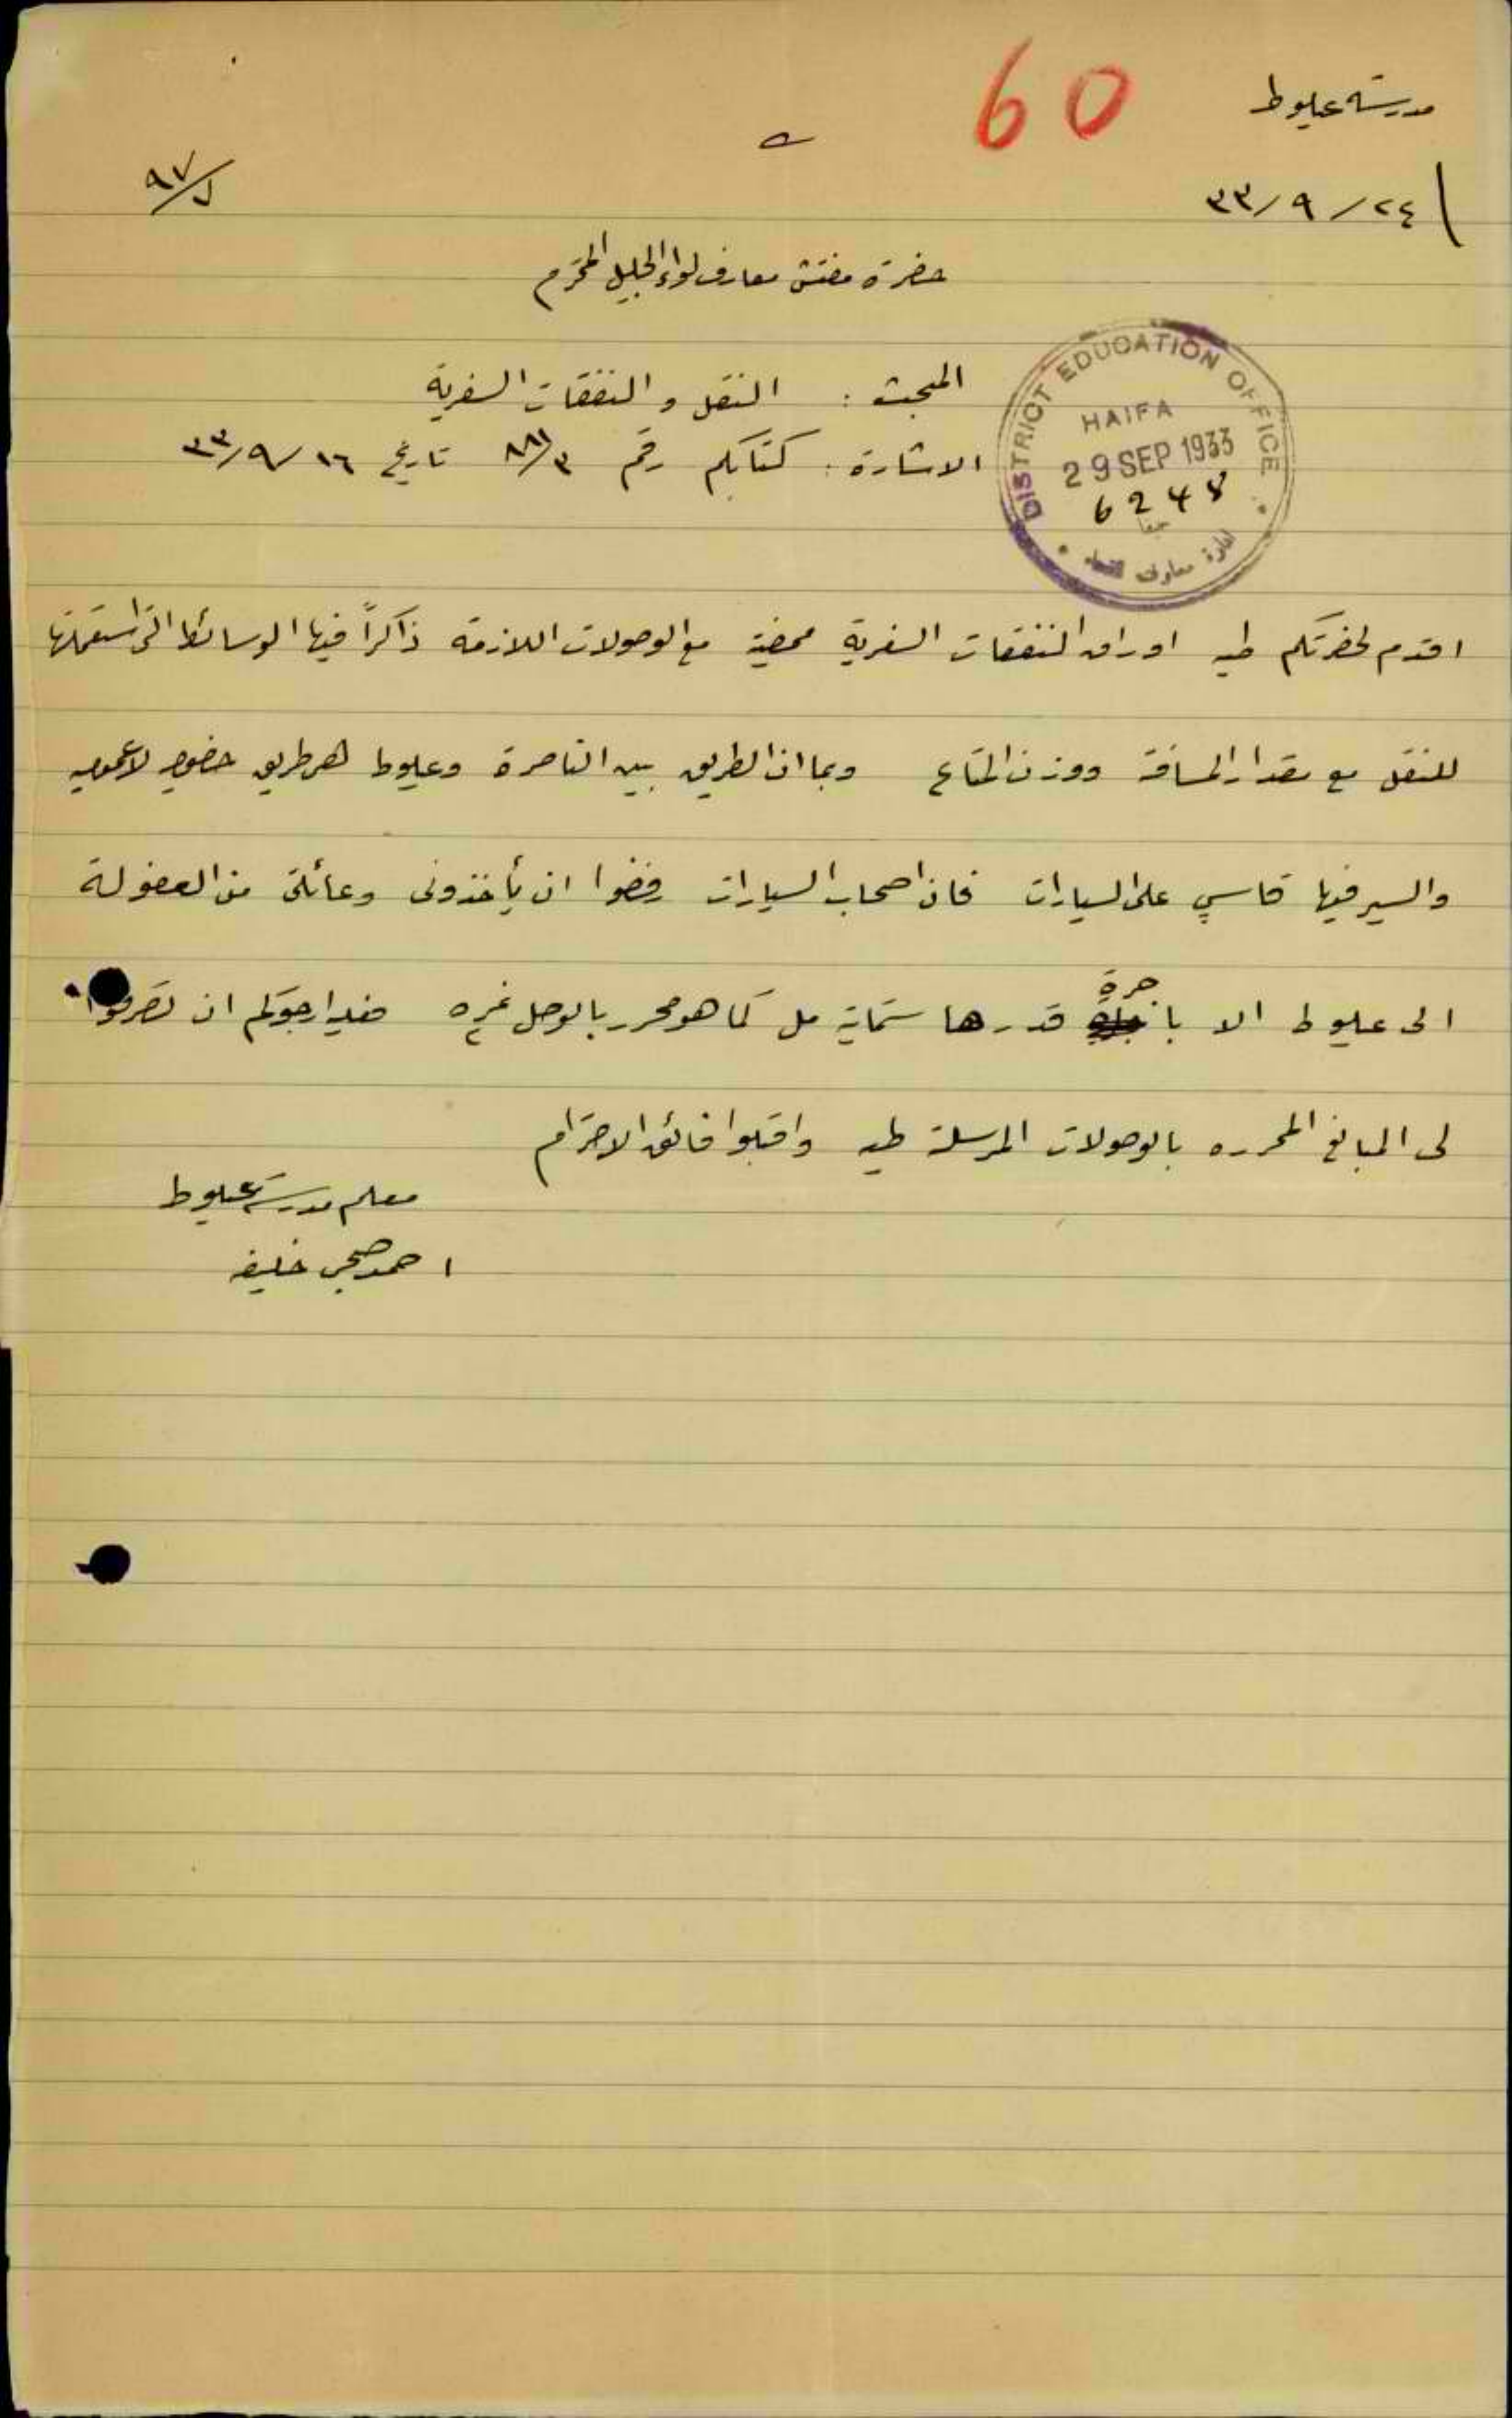 مدرسة عيلوط
60
٢٤/٩/٣٣
٩٧/ل
حضرة مفتش معارف لواء الجليل المحترم
المبحث : النقل و النفقات السفرية
الاشارة : كتابكم رقم ٨٨١/٣ تاريخ ١٦/٩/٣٣
DISTRICT EDUCATION OFFICE
HAIFA
29 SEP 1933
6248
حيفا
ادارة معارف
اقدم لحضرتكم طيه اوراق النفقات السفرية ممضية مع الوصولات اللازمة ذاكراً فيها الوسائط التي استعملتها
للنقل مع مقدار المسافة ووزن المتاع وبما ان الطريق بين الناصرة وعيلوط هي طريق خصوصي لا عمومي
والسير فيها قاسي على السيارات فان اصحاب السيارات رفضوا ان يأخذوني وعائلتي من العفولة
الى عيلوط الا باجرة قدرها ستماية مل كما هو محرر بالوصل نمرة فلهذا ارجوكم ان تصرفوا
لي المبالغ المحرره بالوصولات المرسلة طيه واقبلوا فائق الاحترام
معلم مدرسة عيلوط
احمد صبحي خليفه